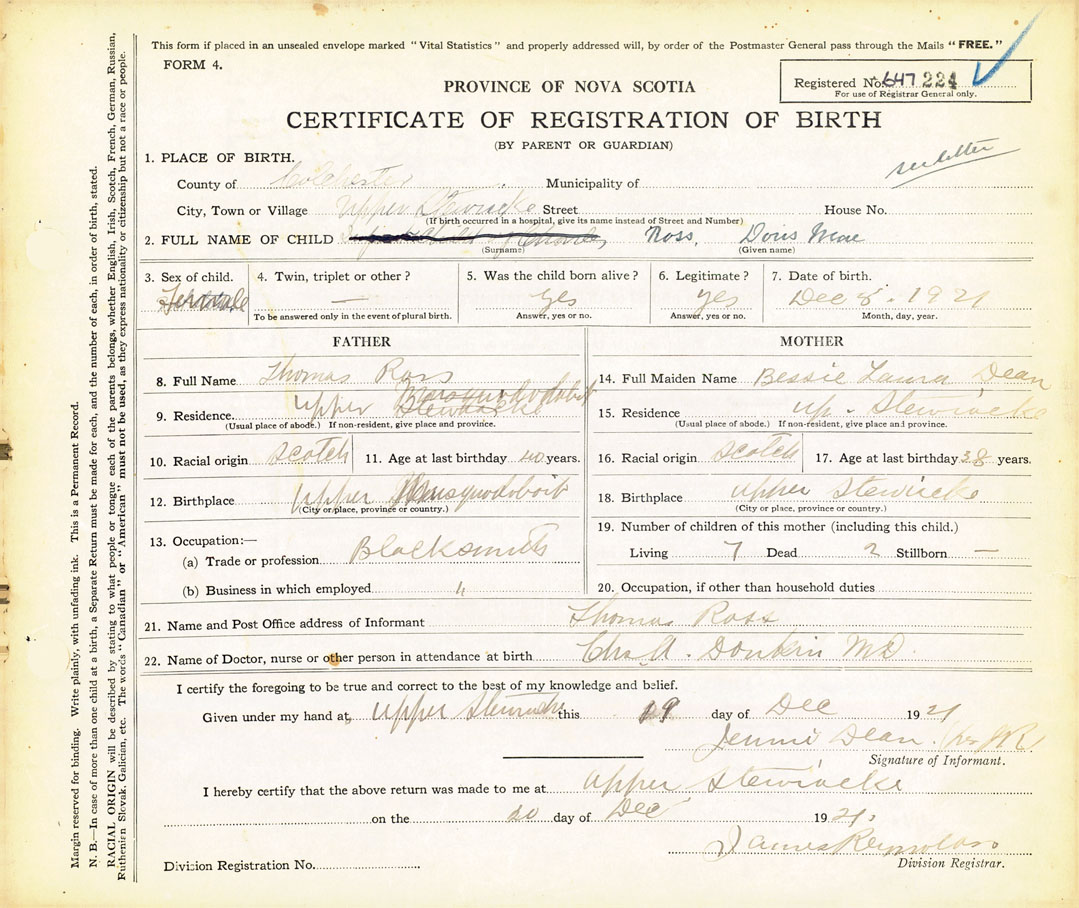 This form if placed in an unsealed envelope marked "Vital Statistics" and properly addressed will, by order of the Postmaster General pass through the Mails "FREE."
FORM 4.
Registered No. 647 224
For use of Registrar General only.
PROVINCE OF NOVA SCOTIA
CERTIFICATE OF REGISTRATION OF BIRTH
(BY PARENT OR GUARDIAN)
see letter
1. PLACE OF BIRTH.
County of Colchester Municipality of
City, Town or Village Upper Stewiacke Street House No.
(If birth occurred in a hospital, give its name instead of Street and Number)
2. FULL NAME OF CHILD Ross, Doris Mae
(Surname) (Given name)
3. Sex of child. 4. Twin, triplet or other? 5. Was the child born alive? 6. Legitimate? 7. Date of birth.
Female — Yes Yes Dec 8. 1921
To be answered only in the event of plural birth. Answer, yes or no. Answer, yes or no. Month, day, year.
FATHER
8. Full Name Thomas Ross
9. Residence. Upper Stewiacke Musquodoboit
(Usual place of abode.) If non-resident, give place and province.
10. Racial origin Scotch 11. Age at last birthday 40 years.
12. Birthplace Upper Musquodoboit
(City or place, province or country.)
13. Occupation:—
(a) Trade or profession Blacksmith
(b) Business in which employed "
MOTHER
14. Full Maiden Name Bessie Laura Dean
15. Residence Up. Stewiacke
(Usual place of abode.) If non-resident, give place and province.
16. Racial origin Scotch 17. Age at last birthday 38 years.
18. Birthplace Upper Stewiacke
(City or place, province or country.)
19. Number of children of this mother (including this child.)
Living 7 Dead 2 Stillborn —
20. Occupation, if other than household duties
21. Name and Post Office address of Informant Thomas Ross
22. Name of Doctor, nurse or other person in attendance at birth Chs A. Donkin MD.
I certify the foregoing to be true and correct to the best of my knowledge and belief.
Given under my hand at Upper Stewiacke this 19 day of Dec 1921
Jennie Dean (per JR)
Signature of Informant.
I hereby certify that the above return was made to me at Upper Stewiacke
on the 20 day of Dec 1921.
James Reynolds
Division Registration No. Division Registrar.
Margin reserved for binding. Write plainly, with unfading ink. This is a Permanent Record.
N. B.—In case of more than one child at a birth, a Separate Return must be made for each, and the number of each, in order of birth, stated.
RACIAL ORIGIN will be described by stating to what people or tongue each of the parents belongs, whether English, Irish, Scotch, French, German, Russian,
Ruthenian Slovak, Galician, etc. The words "Canadian" or "American" must not be used, as they express nationality or citizenship but not a race or people.